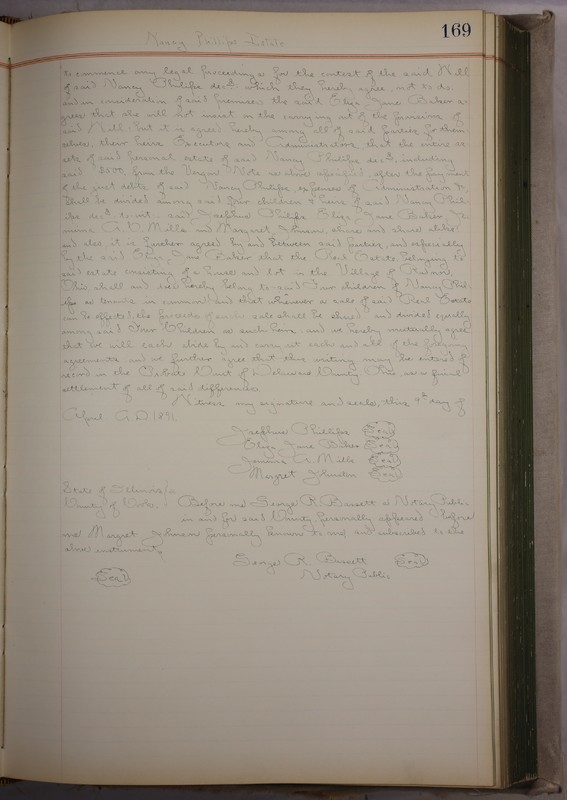 169
Nancy Phillips Estate
to commence any legal proceedings for the contest of the said Will
of said Nancy Phillips decd. which they hereby agree not to do
and in consideration of said premises the said Eliza Jane Baker a-
grees that she will not insist on the carrying out of the provisions of
said Will. but it is agreed hereby among all of said parties for them-
selves, their heirs Executors and Administrators, that the entire as-
sets of said personal estate of said Nancy Phillips decd. including
said from the Note as above after the payment
of the just debts of said Nancy Phillips, expenses of Administration &c
shall be divided among said four children & heirs of said Nancy Phil-
lips decd. to wit: said Josephine Phillips Eliza Jane Baker, Je-
mima A. Mills and Margaret Johnson, share and share alike
and also it is further agreed by and between said parties, and especially
by the said Eliza Jane Baker that the Real Estate belonging to
said estate consisting of a house and lot in the Village of
Ohio, shall and does hereby belong to said Four children of Nancy Phil-
lips as tenants in common and that whenever a sale of said Real Estate
can be effected the proceeds of such sale shall be shared and divided equally
among said Four Children as such heirs and we hereby mutually agree
that we will each abide by and carry out each and all of the foregoing
agreements and we further agree that this writing may be entered of
record in the Probate Court of Delaware County Ohio, as a final
settlement of all of said differences.
Witness my signature and seals, this 9th day of
April A.D. 1891.
Josephine Phillips Seal
Eliza Jane Baker Seal
Jemima A. Mills Seal
Margret Johnston Seal
State of Illinois
County of Cook. Before me George R. Bassett a Notary Public
in and for said County, personally appeared before
me Margret Johnson personally known to me and subscribed to the
above instrument.
George R. Bassett Seal
Seal Notary Public